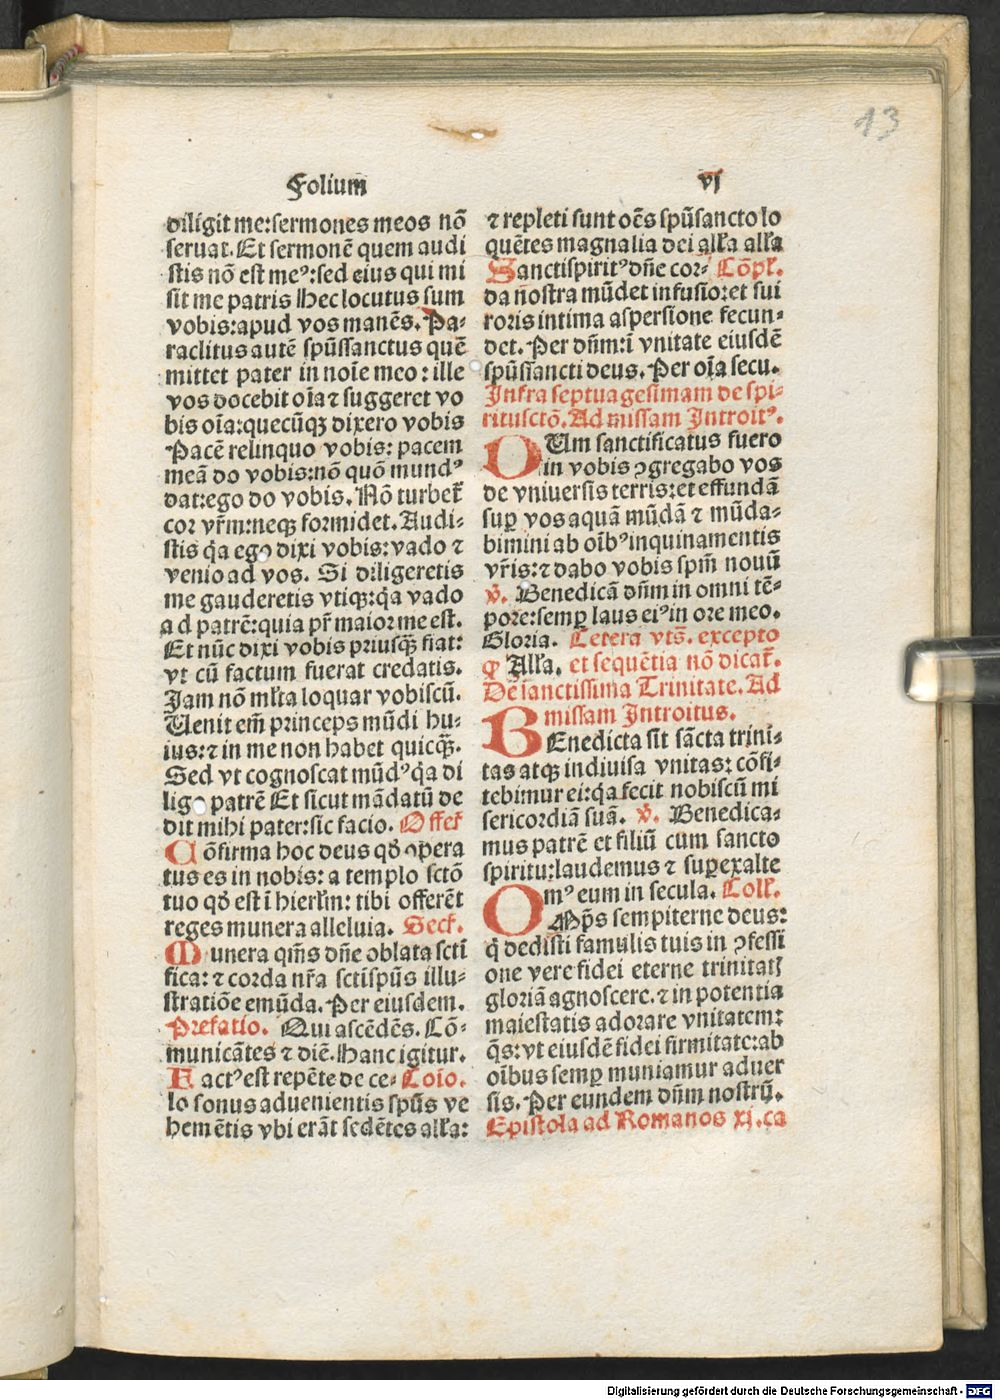 13
Folium̄
vj
diligit me:sermones meos nō
seruat. Et sermonē quem audi
stis nō est meꝰ:sed eius qui mi
sit me patris Hec locutus sum
vobis:apud vos manēs. Pa⸗
raclitus autē spūssanctus quē
mittet pater in noīe meo: ille
vos docebit oīa ⁊ suggeret vo
bis oīa:quecūqꝫ dixero vobis
Pacē relinquo vobis: pacem
meā do vobis:nō quō mundꝰ
dat:ego do vobis. Nō turbet᷑
cor vr̄m:neqꝫ formidet. Audi⸗
stis q̄a ego dixi vobis:vado ⁊
venio ad vos. Si diligeretis
me gauderetis vtiqꝫ:q̄a vado
ad patrē:quia pr̄ maior me est.
Et nūc dixi vobis priusq̄ꝫ fiat:
vt cū factum fuerat credatis.
Jam nō ml̄ta loquar vobiscū.
Uenit em̄ princeps mūdi hu⸗
ius:⁊ in me non habet quicq̄ꝫ.
Sed vt cognoscat mūdꝰ q̄a di
ligo patrē Et sicut mādatū de
dit mihi pater:sic facio. Offer᷑
Cōfirma hoc deus qd̄ opera
tus es in nobis: a templo sctō
tuo qd̄ est ī hierl̄m: tibi offerēt
reges munera alleluia. Secr᷑.
Munera qm̄s dn̄e oblata sctī
fica: ⁊ corda nr̄a sctīspūs illu⸗
stratiōe emūda. Per eiusdem.
Prefatio. Qui ascēdēs. Cō⸗
municātes ⁊ diē. Hanc igitur.
Factꝰ est repēte de ce⸗ Coīo.
lo sonus aduenientis spūs ve
hemētis vbi erāt sedētes all̄a:
⁊ repleti sunt oēs spūsancto lo
quētes magnalia dei all̄a all̄a
Sanctispiritꝰ dn̄e cor⸗ Cōpl̄.
da nostra mūdet infusio:et sui
roris intima aspersione fecun⸗
det. Per dn̄m:ī vnitate eiusdē
spūssancti deus. Per oīa secu.
Infra septuagesimam de spi⸗
ritusctō. Ad missam Introitꝰ.
CUm sanctificatus fuero
in vobis ꝯgregabo vos
de vniuersis terris:et effundā
suꝑ vos aquā mūdā ⁊ mūda⸗
bimini ab oībꝰ inquinamentis
vr̄is:⁊ dabo vobis spm̄ nouū
v̄. Benedicā dn̄m in omni tē⸗
pore:semꝑ laus eiꝰ in ore meo.
Gloria. Cetera vts̄. excepto
ꝙ All̄a. et sequētia nō dicat᷑.
De sanctissima Trinitate. Ad
missam Introitus.
BEnedicta sit sācta trini⸗
tas atqꝫ indiuisa vnitas: cōfi⸗
tebimur ei:q̄a fecit nobiscū mi
sericordiā suā. v̄. Benedica⸗
mus patrē et filiū cum sancto
spiritu:laudemus ⁊ suꝑexalte
mꝰ eum in secula. Coll̄.
OMp̄s sempiterne deus:
q̄ dedisti famulis tuis in ꝯfessi
one vere fidei eterne trinitatꝭ
gloriā agnoscere.⁊ in potentia
maiestatis adorare vnitatem:
q̄s:vt eiusdē fidei firmitate:ab
oībus semꝑ muniamur aduer
sis. Per eundem dn̄m nostrū.
Epistola ad Romanos xj.ca
Digitalisierung gefördert durch die Deutsche Forschungsgemeinschaft - DFG